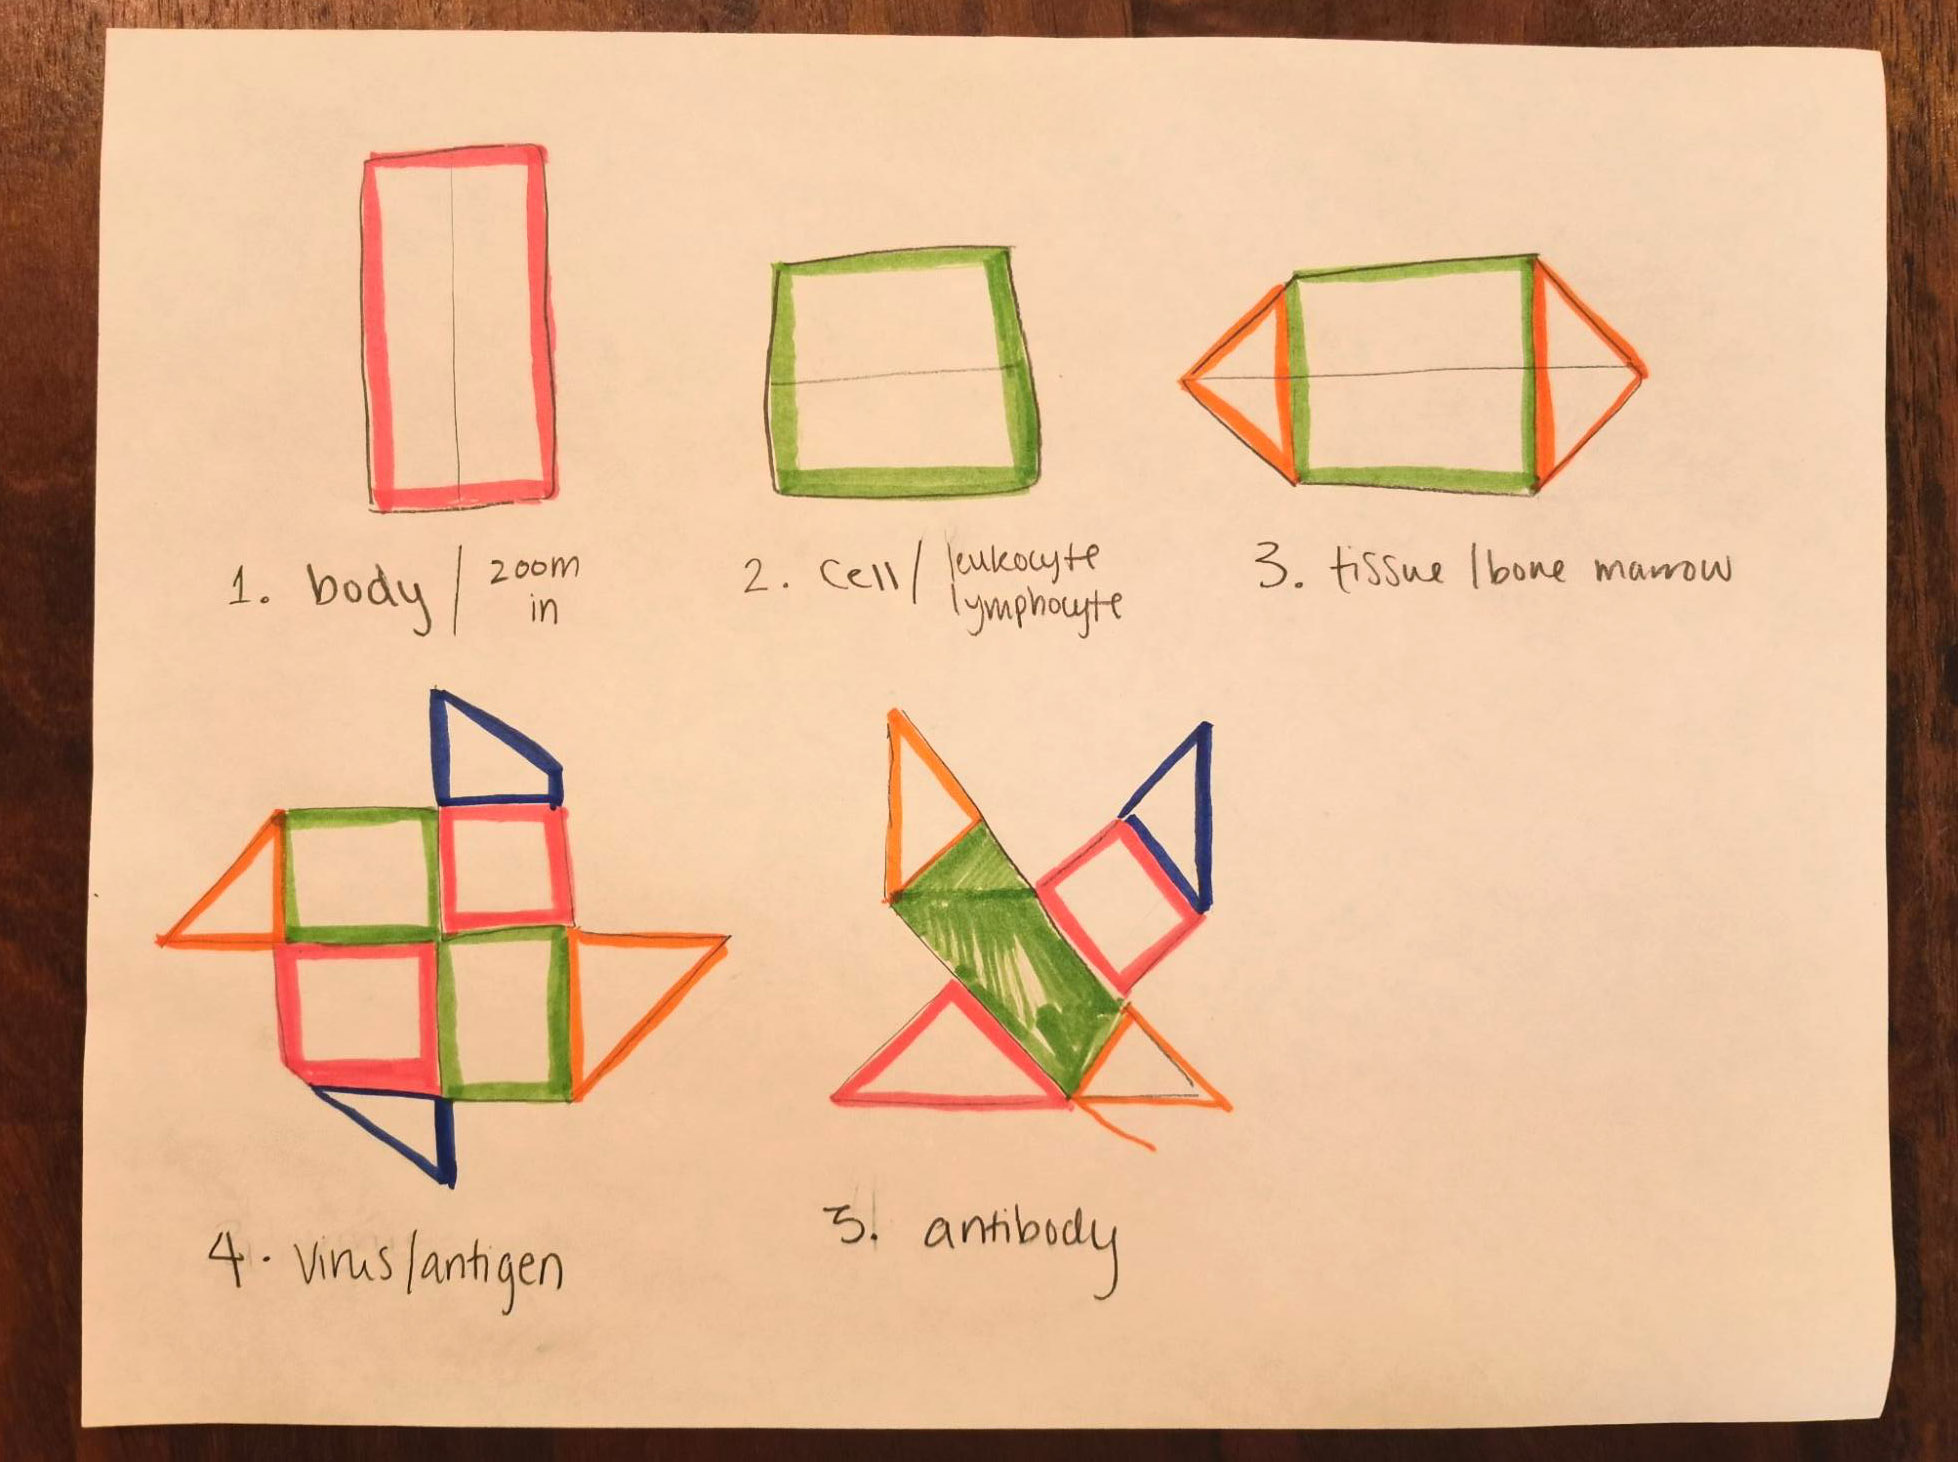 1. body / zoom in
2. Cell / leukocyte lymphocyte
3. tissue / bone marrow
4. Virus/antigen
5. antibody